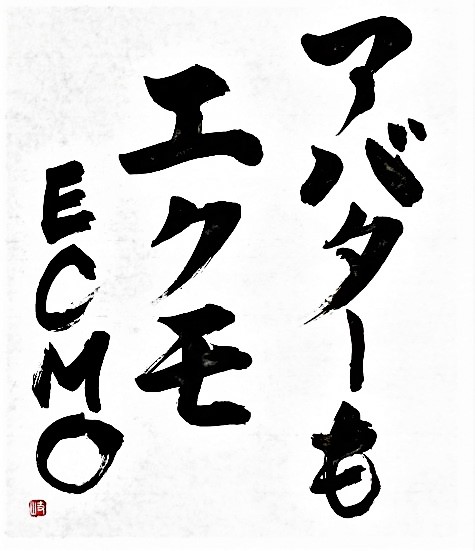 アバターも
エクモ
ECMO